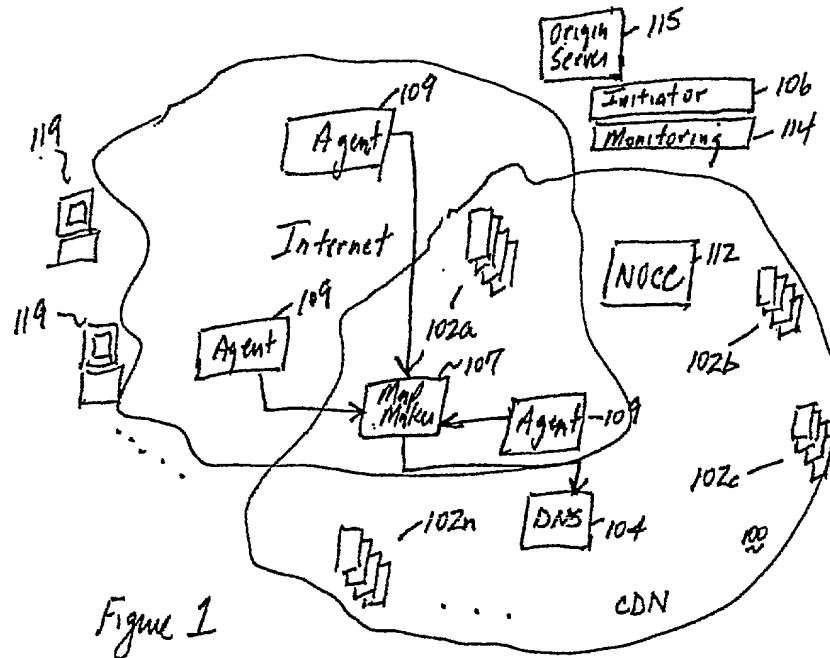 Origin
Server
115
Initiator
106
Monitoring
114
109
Agent
119
Internet
NOCC
112
102a
102b
109
119
Agent
107
Map
Maker
Agent
109
102c
DNS
104
102n
100
. . .
CDN
Figure 1